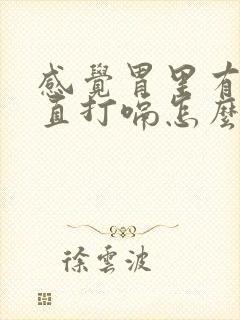 感覺胃里有
直打嗝怎麼
徐雲波